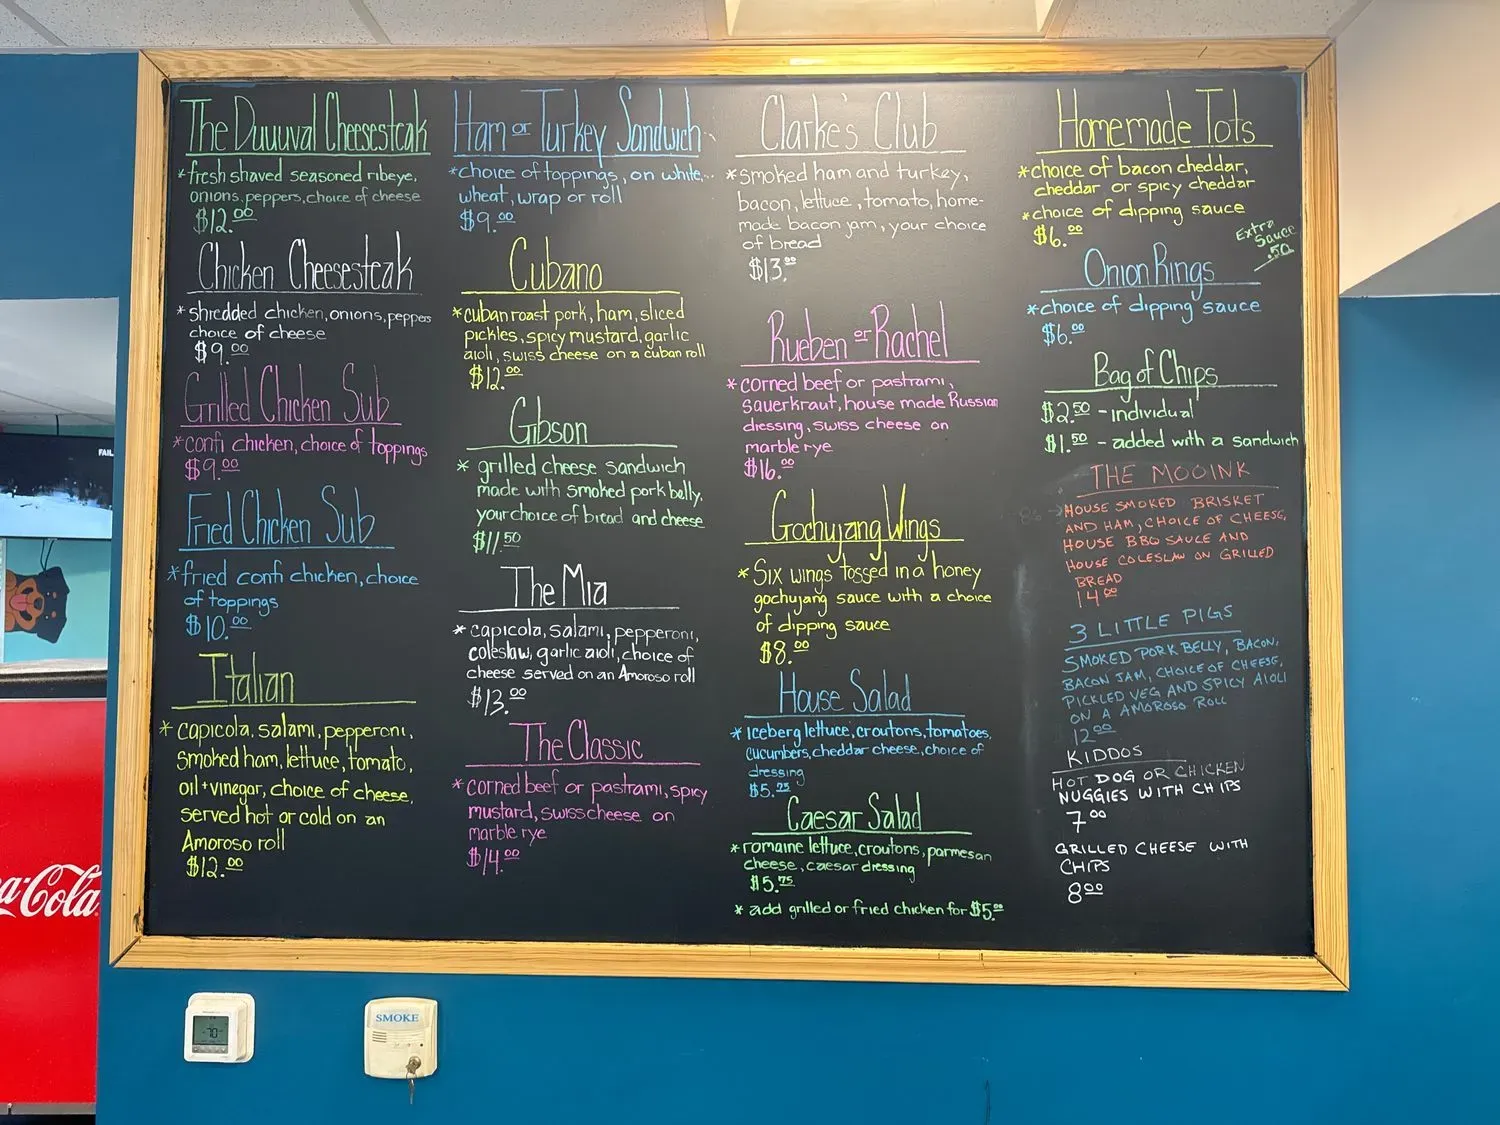 The Duuuval Cheesesteak
*fresh shaved seasoned ribeye,
onions, peppers, choice of cheese
$12.00
Chicken Cheesesteak
*shredded chicken, onions, peppers
choice of cheese
$9.00
Grilled Chicken Sub
*confi chicken, choice of toppings
$9.00
Fried Chicken Sub
*fried confi chicken, choice
of toppings
$10.00
Italian
*capicola, salami, pepperoni,
smoked ham, lettuce, tomato,
oil+vinegar, choice of cheese,
served hot or cold on an
Amoroso roll
$12.00
Ham or Turkey Sandwich
*choice of toppings, on white,
wheat, wrap or roll
$9.00
Cubano
*cuban roast pork, ham, sliced
pickles, spicy mustard, garlic
aioli, swiss cheese on a cuban roll
$12.00
Gibson
* grilled cheese sandwich
made with smoked pork belly,
your choice of bread and cheese
$11.50
The Mia
* capicola, salami, pepperoni,
coleslaw, garlic aioli, choice of
cheese served on an Amoroso roll
$13.00
The Classic
*corned beef or pastrami, spicy
mustard, swiss cheese on
marble rye
$14.00
Clarke's Club
*smoked ham and turkey,
bacon, lettuce, tomato, home-
made bacon jam, your choice
of bread
$13.00
Rueben or Rachel
*corned beef or pastrami,
sauerkraut, house made Russian
dressing, swiss cheese on
marble rye
$16.00
Gochujang Wings
* Six wings tossed in a honey
gochujang sauce with a choice
of dipping sauce
$8.00
House Salad
*Iceberg lettuce, croutons, tomatoes,
cucumbers, cheddar cheese, choice of
dressing
$5.75
Caesar Salad
*romaine lettuce, croutons, parmesan
cheese, caesar dressing
$5.75
* add grilled or fried chicken for $5.00
Homemade Tots
*choice of bacon cheddar,
cheddar or spicy cheddar
*choice of dipping sauce
$6.00
Extra
Sauce
.50
Onion Rings
*choice of dipping sauce
$6.00
Bag of Chips
$2.50 - individual
$1.50 - added with a sandwich
THE MOOINK
HOUSE SMOKED BRISKET
AND HAM, CHOICE OF CHEESE,
HOUSE BBQ SAUCE AND
HOUSE COLESLAW ON GRILLED
BREAD
14.00
3 LITTLE PIGS
SMOKED PORK BELLY, BACON,
BACON JAM, CHOICE OF CHEESE,
PICKLED VEG AND SPICY AIOLI
ON A AMOROSO ROLL
12.00
KIDDOS
HOT DOG OR CHICKEN
NUGGIES WITH CHIPS
7.00
GRILLED CHEESE WITH
CHIPS
8.00
FAIL
a-Cola
70
SMOKE